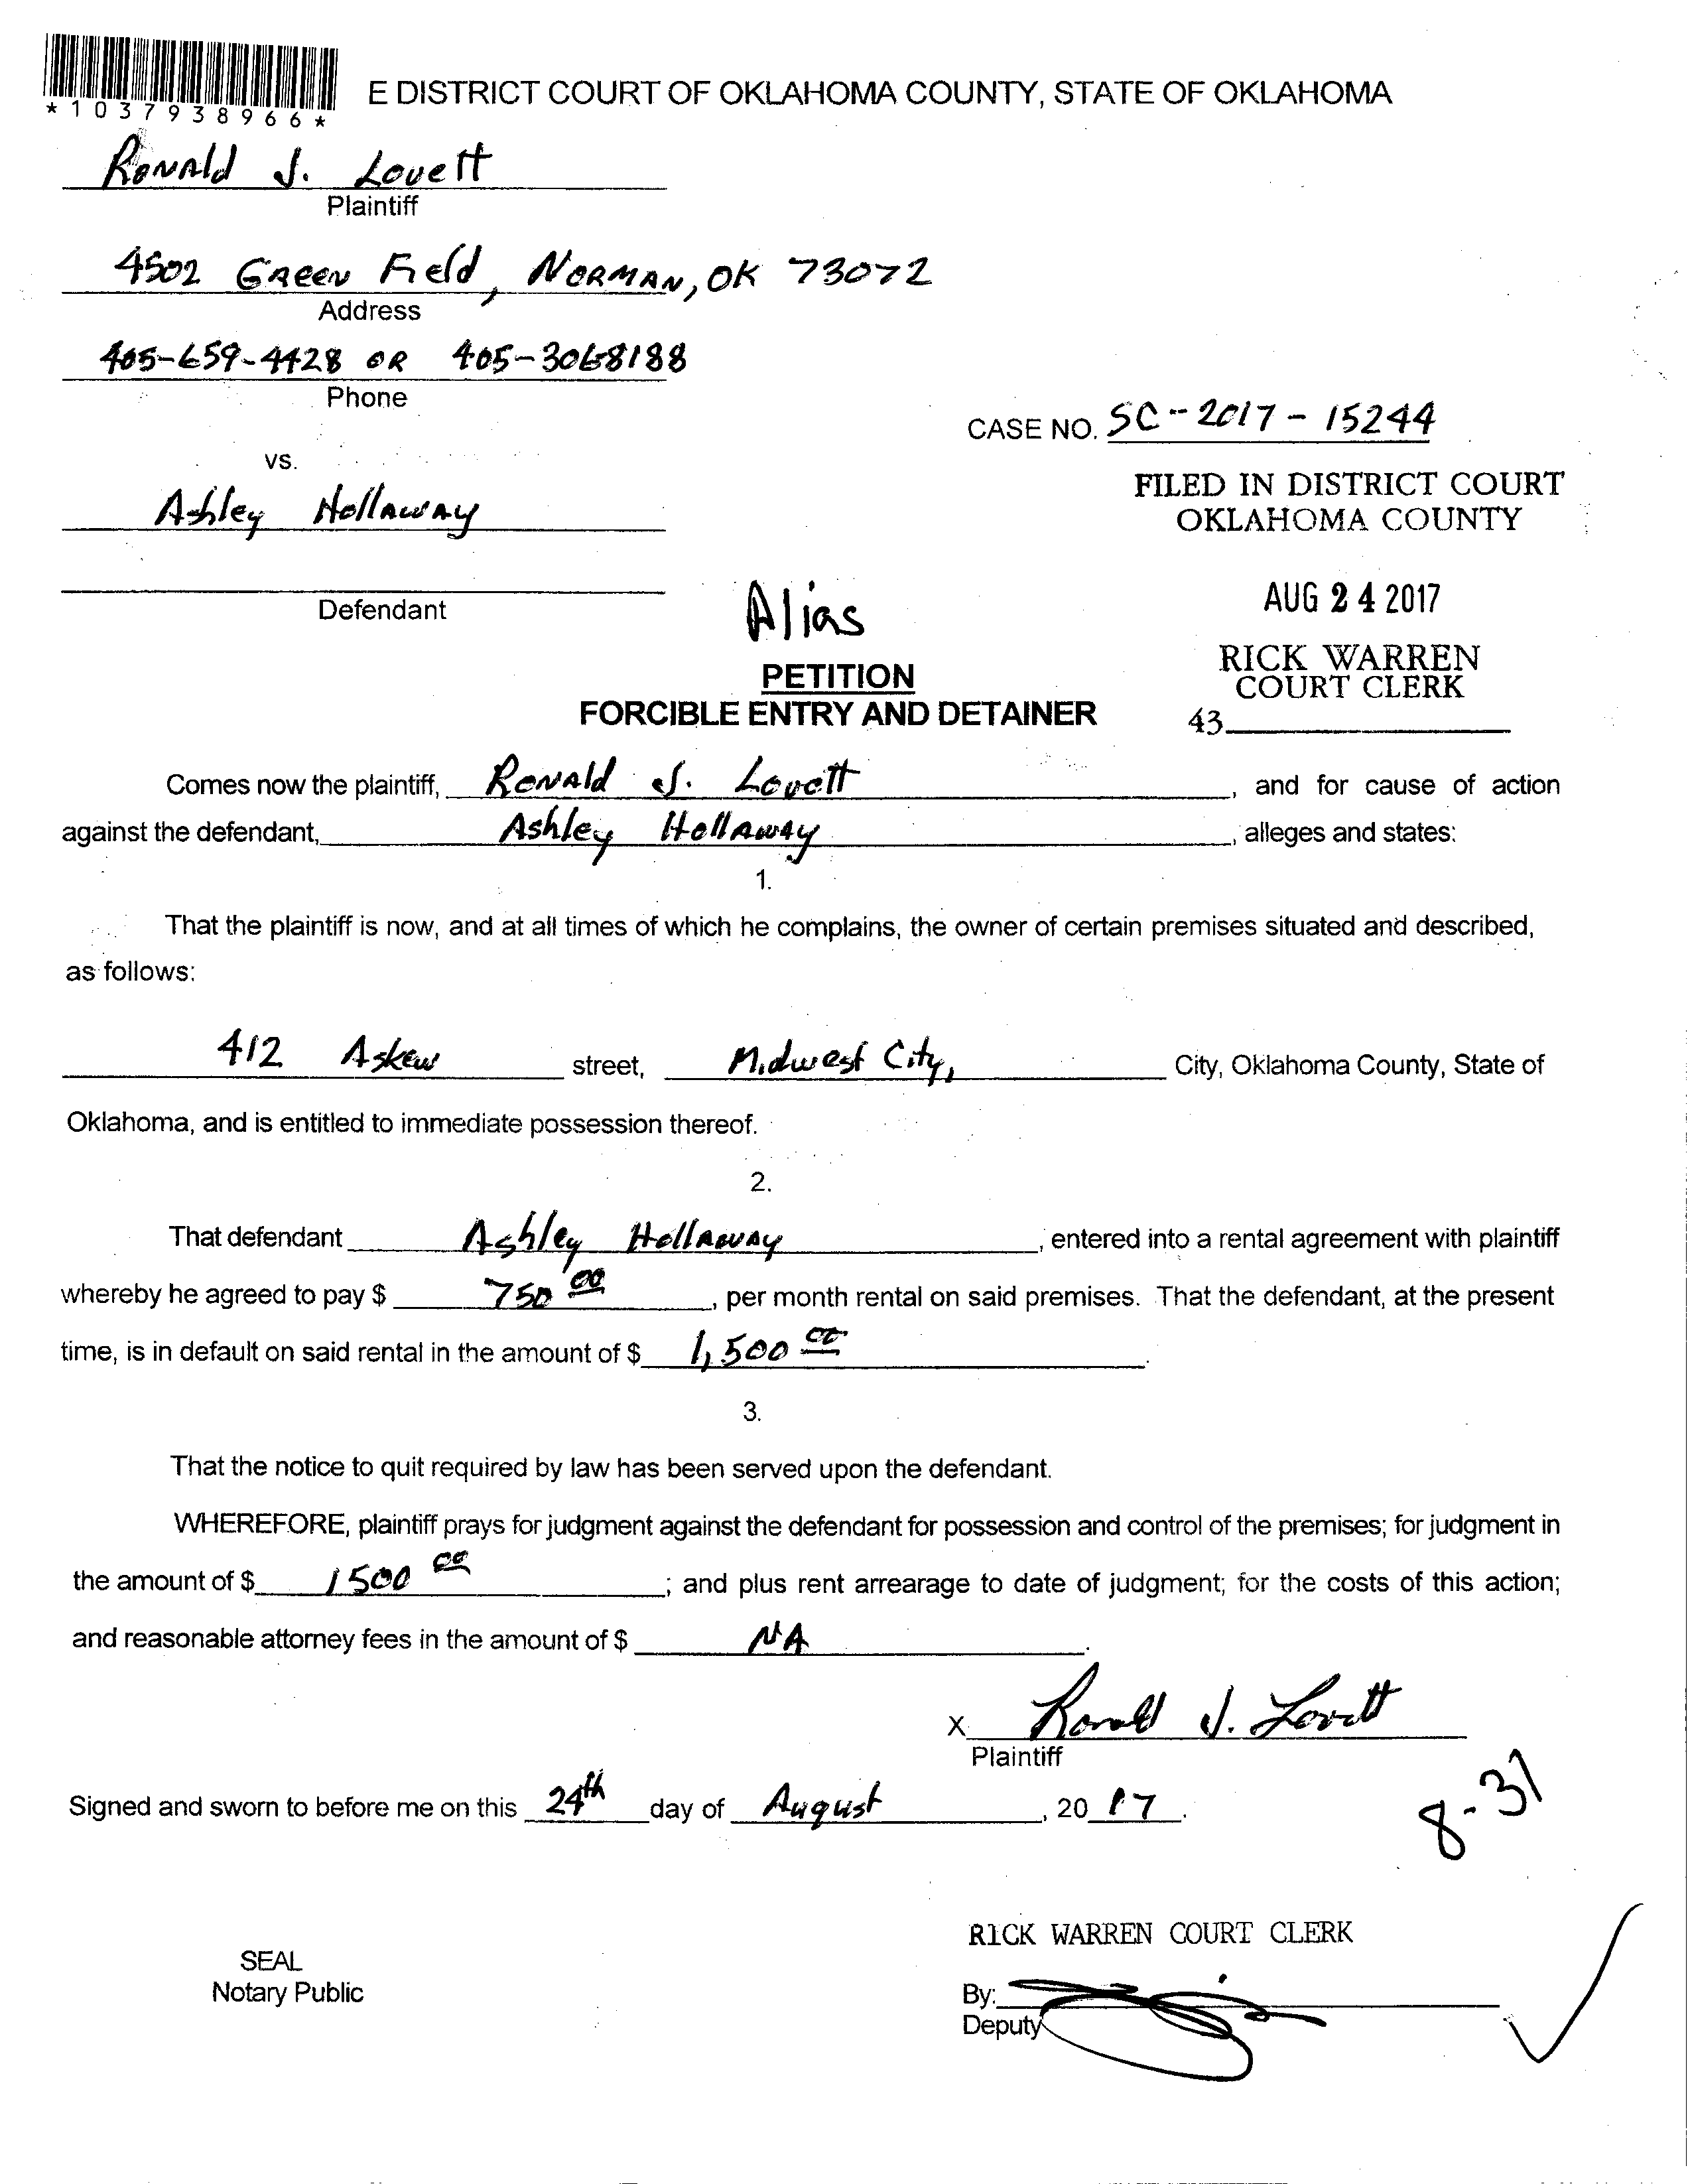 *1037938966*
E DISTRICT COURT OF OKLAHOMA COUNTY, STATE OF OKLAHOMA
Ronald J. Lovett
Plaintiff
4502 Green Field, Norman, OK 73072
Address
405-659-4428 OR 405-3068188
Phone
CASE NO. SC-2017-15244
vs.
FILED IN DISTRICT COURT
OKLAHOMA COUNTY
Ashley Hollaway
AUG 24 2017
Defendant
Alias
RICK WARREN
COURT CLERK
43
PETITION
FORCIBLE ENTRY AND DETAINER
Comes now the plaintiff, Ronald J. Lovett, and for cause of action
against the defendant, Ashley Hollaway, alleges and states:
1.
That the plaintiff is now, and at all times of which he complains, the owner of certain premises situated and described,
as follows:
412 Askew street, Midwest City, City, Oklahoma County, State of
Oklahoma, and is entitled to immediate possession thereof.
2.
That defendant Ashley Hollaway, entered into a rental agreement with plaintiff
whereby he agreed to pay $ 750 00, per month rental on said premises. That the defendant, at the present
time, is in default on said rental in the amount of $ 1,500 00.
3.
That the notice to quit required by law has been served upon the defendant.
WHEREFORE, plaintiff prays for judgment against the defendant for possession and control of the premises; for judgment in
the amount of $ 1500 00; and plus rent arrearage to date of judgment; for the costs of this action;
and reasonable attorney fees in the amount of $ NA.
X Ronald J. Lovett
Plaintiff
Signed and sworn to before me on this 24th day of August, 2017.
8-31
RICK WARREN COURT CLERK
SEAL
Notary Public
By:
Deputy